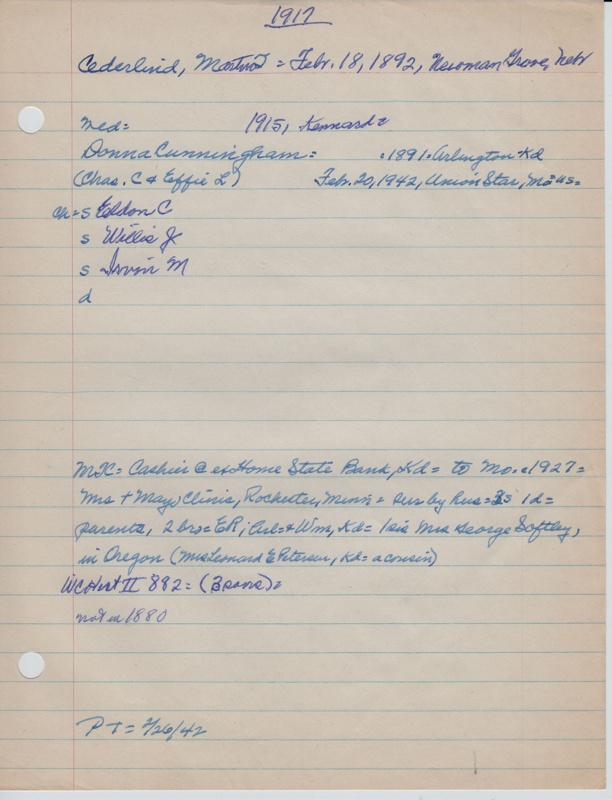 1917
Cederlind, Martin = Febr. 18, 1892, Newman Grove, Nebr
Med= 1915, Kennard=
Donna Cunningham= .1891. Arlington Kd
(Chas. C & Effie L) Febr. 20, 1942, Union Star, Mo=
Ch= s Eldon C
s Willis J
s Irvin M
d
MX= Cashier @ ex Home State Bank, Kd= to Mo. c1927=
Mrs + Mayo Clinic, Rochester, Minn= sur by Hus= 3s 1d=
parents, 2 bro= & Wm, Kd= 1 sis Mrs George Softley,
in Oregon (Mrs Leonard E Petersen, Kd= a cousin)
WCHist II 882= (3 sons)=
not in 1880
P T= 2/26/42